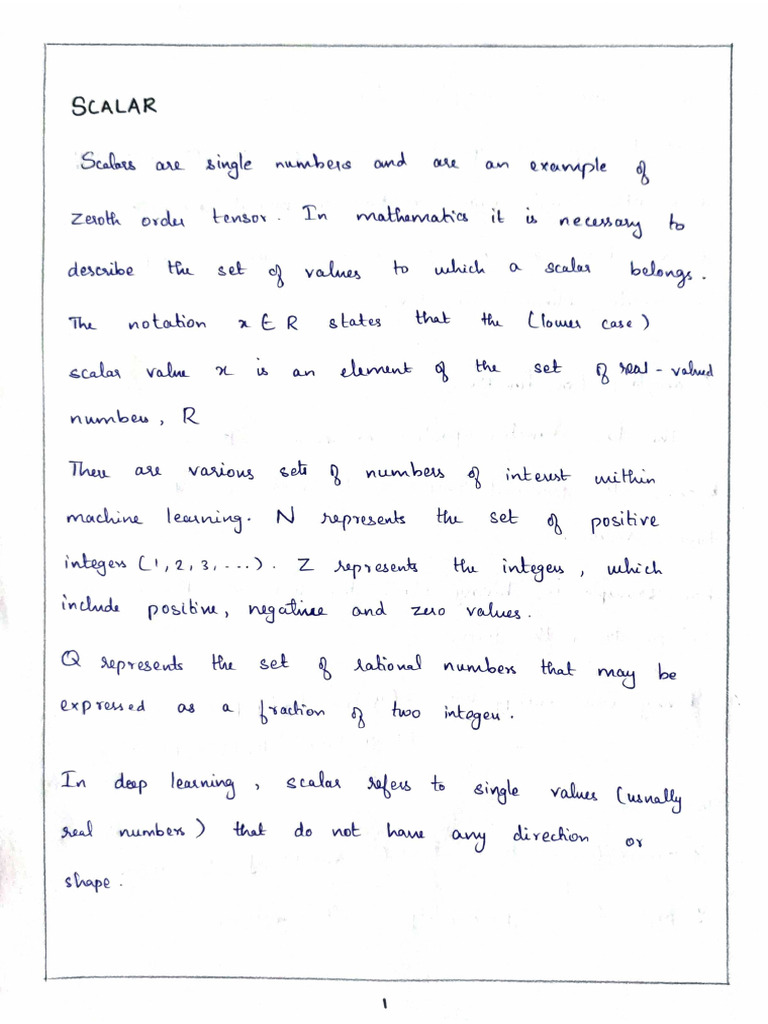 SCALAR
Scalars are single numbers and are an example of
zeroth order tensor. In mathematics it is necessary to
describe the set of values to which a scalar belongs.
The notation x ∈ R states that the (lower case)
scalar value x is an element of the set of real-valued
numbers, R
There are various sets of numbers of interest within
machine learning. N represents the set of positive
integers (1, 2, 3, ...). Z represents the integers, which
include positive, negative and zero values.
Q represents the set of rational numbers that may be
expressed as a fraction of two integers.
In deep learning, scalar refers to single values (usually
real numbers) that do not have any direction or
shape.
1